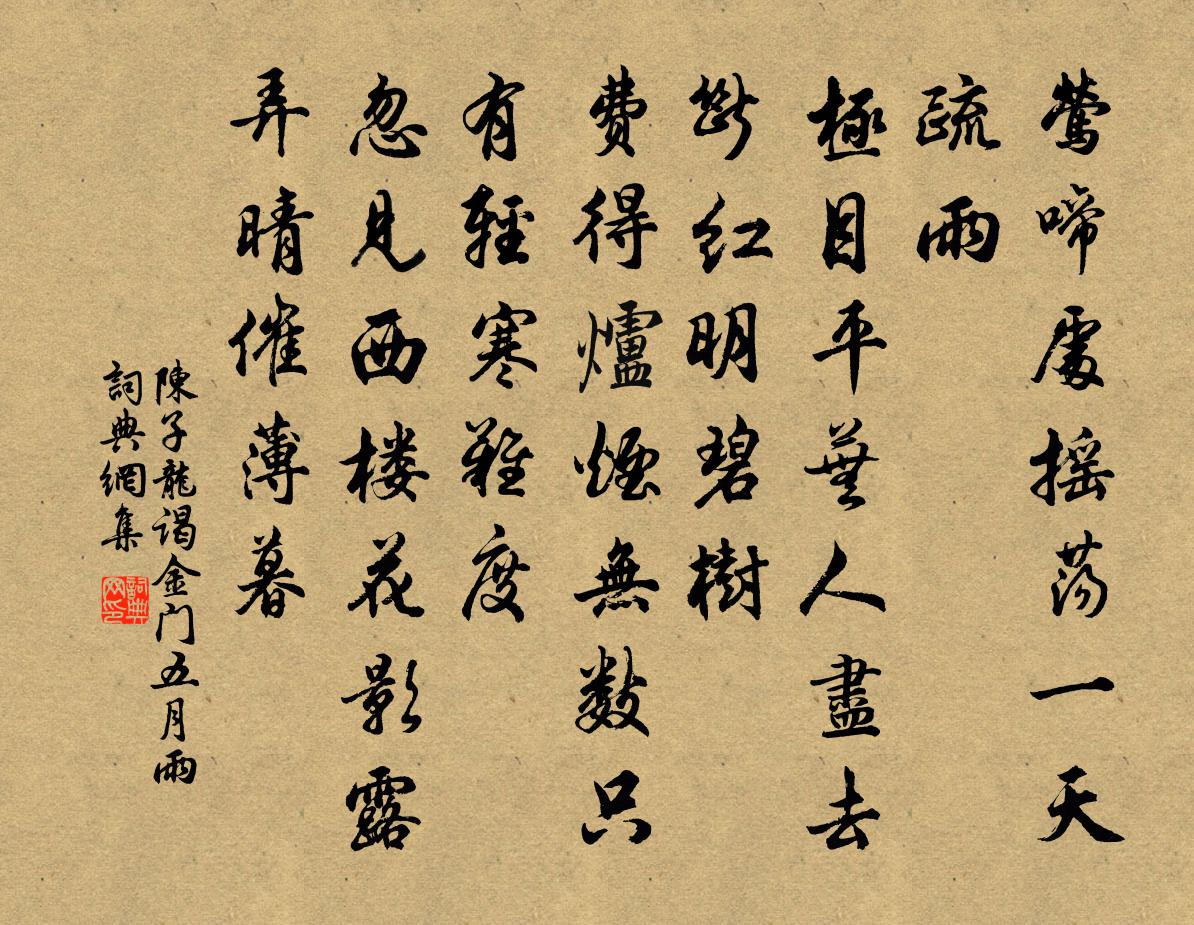 鶯啼處摇蕩一天
疏雨
極目平蕪人盡去
斷红明碧樹
費得爐煙無數只
有輕寒難度
忽見西楼花影露
弄晴催薄暮
陳子龍谒金门五月雨
詞典網集
詞典网印